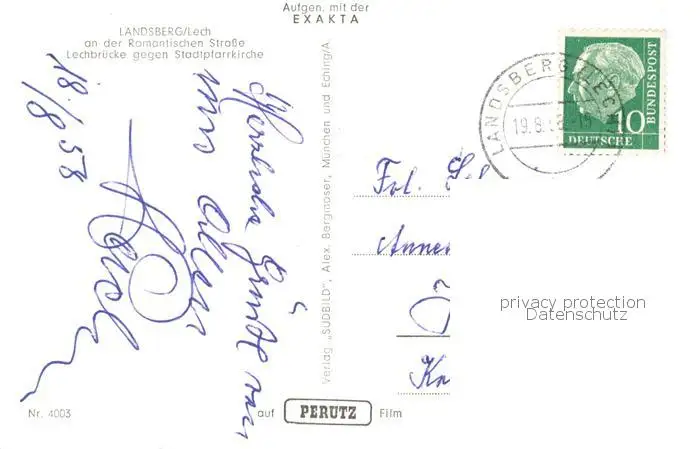 Aufgen. mit der
EXAKTA
LANDSBERG/Lech
an der Romantischen Straße
Lechbrücke gegen Stadtpfarrkirche
18./8 58
Herzliche Grüße von
uns allen
Verlag „SÜDBILD", Alex. Bergmoser, München und Eching/A.
LANDSBERG (LECH)
19.8.
10
DEUTSCHE
BUNDESPOST
Frl.
privacy protection
Datenschutz
Nr. 4003
auf PERUTZ Film